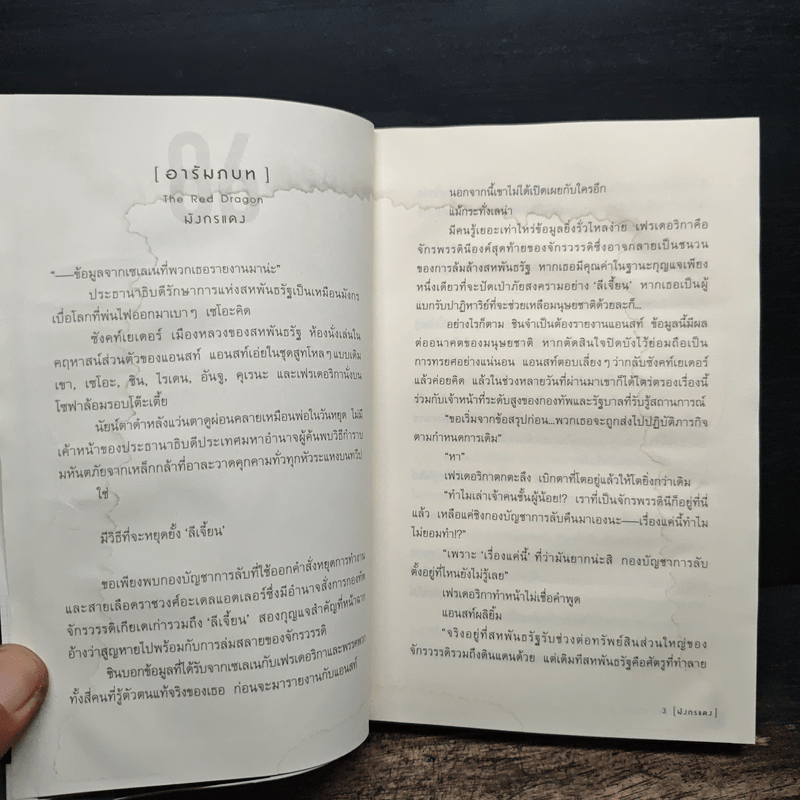 [ อารัมภบท ]
The Red Dragon
มังกรแดง
“——ข้อมูลจากเซเลเน่ที่พวกเธอรายงานมาน่ะ”
ประธานาธิบดีรักษาการแห่งสหพันธรัฐเป็นเหมือนมังกร
เบื่อโลกที่พ่นไฟออกมาเบาๆ เซโอะคิด
ซังคท์เยเดอร์ เมืองหลวงของสหพันธรัฐ ห้องนั่งเล่นใน
คฤหาสน์ส่วนตัวของแอนสท์ แอนสท์เอ่ยในชุดสูทโหลๆ แบบเดิม
เขา, เซโอะ, ชิน, ไรเดน, อันจู, คุเรนะ และเฟรเดอริกานั่งบน
โซฟาล้อมรอบโต๊ะเตี้ย
นัยน์ตาดำหลังแว่นตาดูผ่อนคลายเหมือนพ่อในวันหยุด ไม่มี
เค้าหน้าของประธานาธิบดีประเทศมหาอำนาจผู้ค้นพบวิธีกำราบ
มหันตภัยจากเหล็กกล้าที่อาละวาดคุกคามทั่วทุกหัวระแหงบนทวีป
ใช่
มีวิธีที่จะหยุดยั้ง ‘ลีเจี้ยน’
ขอเพียงพบกองบัญชาการลับที่ใช้ออกคำสั่งหยุดการทำงาน
และสายเลือดราชวงศ์อะเดลแอดเลอร์ซึ่งมีอำนาจสั่งการกองทัพ
จักรวรรดิเกียเดเก่ารวมถึง ‘ลีเจี้ยน’ สองกุญแจสำคัญที่หน้าฉาก
อ้างว่าสูญหายไปพร้อมกับการล่มสลายของจักรวรรดิ
ชินบอกข้อมูลที่ได้รับจากเซเลเน่กับเฟรเดอริกาและพรรคพวก
ทั้งสี่คนที่รู้ตัวตนแท้จริงของเธอ ก่อนจะมารายงานกับแอนสท์
นอกจากนี้เขาไม่ได้เปิดเผยกับใครอีก
แม้กระทั่งเลน่า
มีคนรู้เยอะเท่าไหร่ข้อมูลยิ่งรั่วไหลง่าย เฟรเดอริกาคือ
จักรพรรดินีองค์สุดท้ายของจักรวรรดิซึ่งอาจกลายเป็นชนวน
ของการล้มล้างสหพันธรัฐ หากเธอมีคุณค่าในฐานะกุญแจเพียง
หนึ่งเดียวที่จะปัดเป่าภัยสงครามอย่าง ‘ลีเจี้ยน’ หากเธอเป็นผู้
แบกรับปาฏิหาริย์ที่จะช่วยเหลือมนุษยชาติด้วยละก็...
อย่างไรก็ตาม ชินจำเป็นต้องรายงานแอนสท์ ข้อมูลนี้มีผล
ต่ออนาคตของมนุษยชาติ หากตัดสินใจปิดบังไว้ย่อมถือเป็น
การทรยศอย่างแน่นอน แอนสท์ตอบเลี่ยงๆ ว่ากลับซังคท์เยเดอร์
แล้วค่อยคิด แล้วในช่วงหลายวันที่ผ่านมาเขาก็ได้ไตร่ตรองเรื่องนี้
ร่วมกับเจ้าหน้าที่ระดับสูงของกองทัพและรัฐบาลที่รับรู้สถานการณ์
“ขอเริ่มจากข้อสรุปก่อน...พวกเธอจะถูกส่งไปปฏิบัติภารกิจ
ตามกำหนดการเดิม”
“หา”
เฟรเดอริกาตกตะลึง เบิกตาที่โตอยู่แล้วให้โตยิ่งกว่าเดิม
“ทำไมเล่าเจ้าคนชั้นผู้น้อย!? เราที่เป็นจักรพรรดินีก็อยู่ที่นี่
แล้ว เหลือแค่ชิงกองบัญชาการลับคืนมาเองนะ——เรื่องแค่นี้ทำไม
ไม่ยอมทำ!?”
“เพราะ ‘เรื่องแค่นี้’ ที่ว่ามันยากน่ะสิ กองบัญชาการลับ
ตั้งอยู่ที่ไหนยังไม่รู้เลย”
เฟรเดอริกาทำหน้าไม่เชื่อคำพูด
แอนสท์ผลิยิ้ม
“จริงอยู่ที่สหพันธรัฐรับช่วงต่อทรัพย์สินส่วนใหญ่ของ
จักรวรรดิรวมถึงดินแดนด้วย แต่เดิมทีสหพันธรัฐคือศัตรูที่ทำลาย
3 [มังกรแดง]